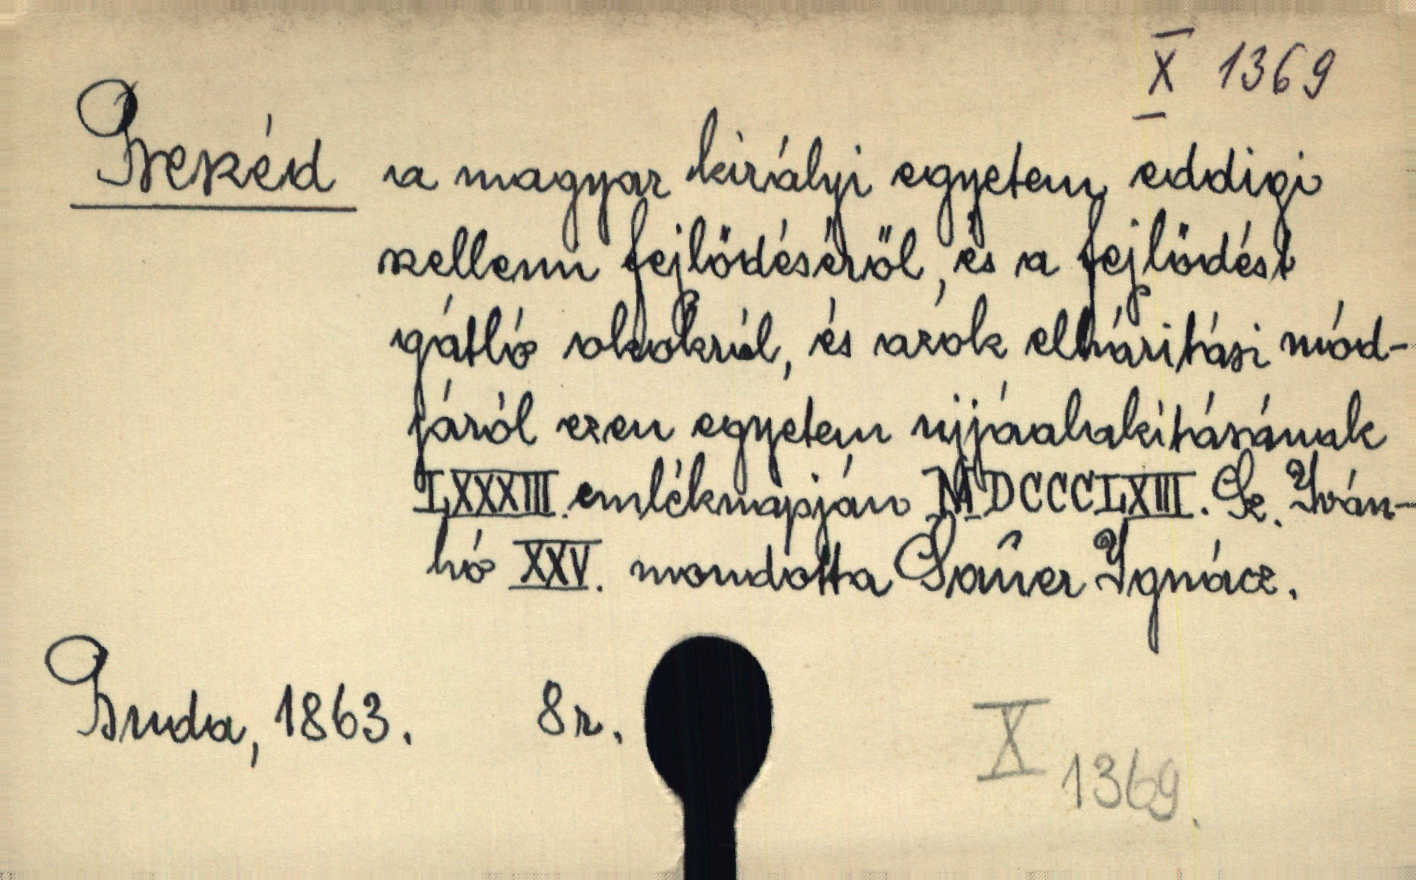 X 1369
Beszéd a magyar királyi egyetem eddigi
szellemi fejlődéséről, és a fejlődést
gátló okokról, és azok elháritási mód-
járól ezen egyetem ujjáalakitásának
LXXXIII. emléknapján MDCCCLXIII. Sz. Iván-
hó XXV. mondotta Saûer Ignácz.
Buda, 1863. 8r.
X 1369.